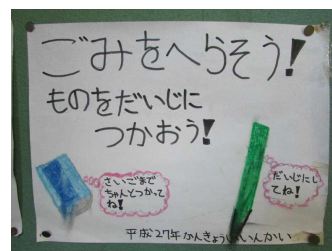 ごみをへらそう!
ものをだいじに
つかおう!
さいごまで
ちゃんとつかって
ね!
だいじにし
てね!
平成27年 かんきょういいんかい